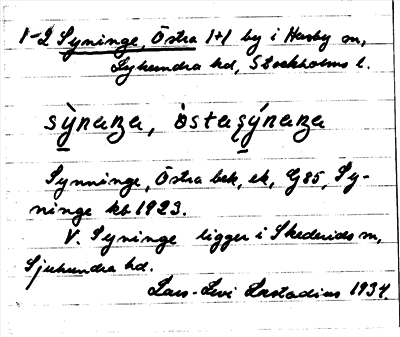 1-2 Syninge, Östra 1+1 by i Husby sn,
Lyhundra hd, Stockholms l.
sỳnaŋa, òstaşýnaŋa
Synninge, Östra bek, ek, G85, Sy-
ninge kb 1923.
V. Syninge ligger i Skederids sn,
Sjuhundra hd.
Lars-Levi Læstadius 1934.